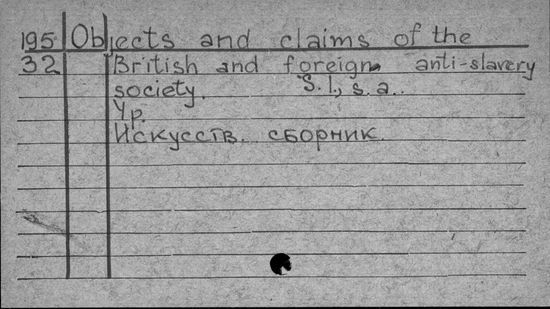 195 Objects and claims of the
32 British and foreign anti-slavery
society. S. l., s. a..
Ур.
Искусств. сборник.